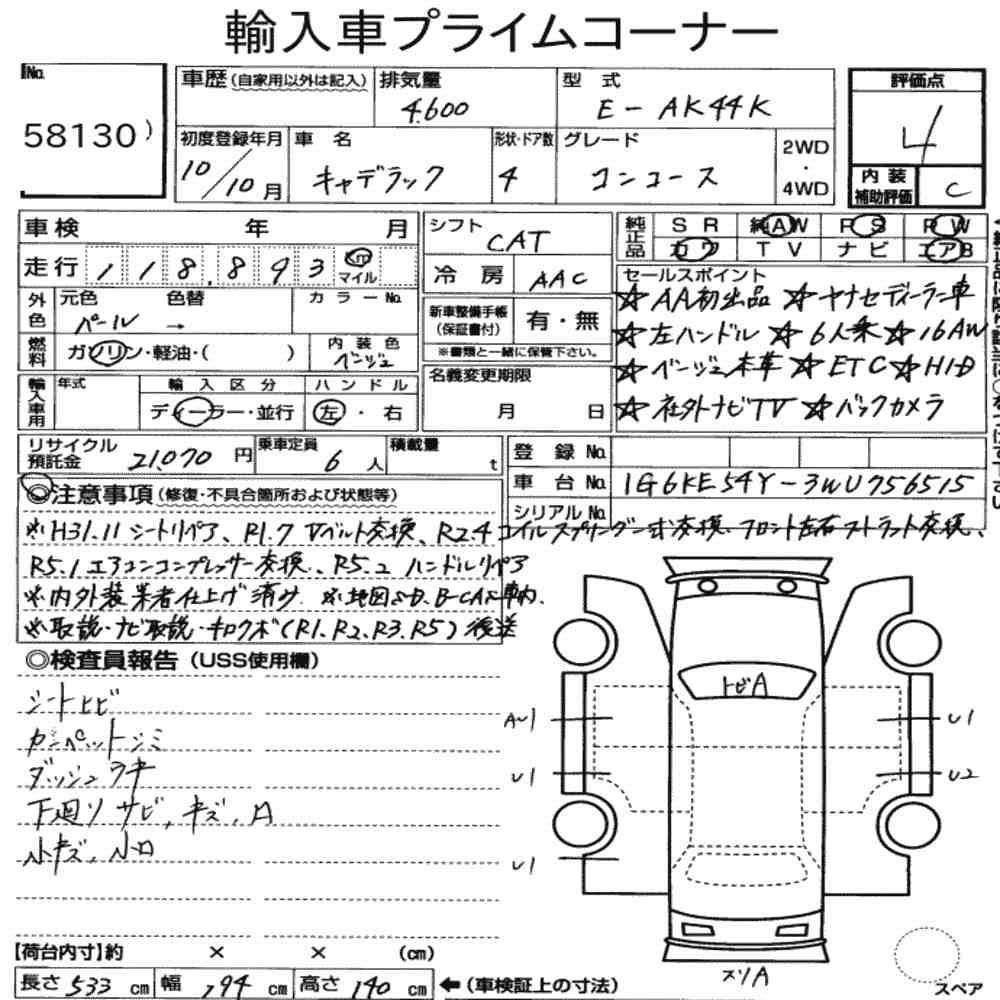 輸入車プライムコーナー
No. 58130
車歴(自家用以外は記入)
排気量 4.600
型式 E-AK44K
評価点 4
初度登録年月 10/10月
車名 キャデラック
形状・ドア数 4
グレード コンコース
2WD・4WD
内装補助評価 C
車検 年 月
シフト CAT
純正品 SR 純AW PS PW
カワ TV ナビ エアB
走行 118,893 km マイル
冷房 AAC
外色 元色 パール → 色替 カラーNo.
新車整備手帳(保証書付) 有・無
※書類と一緒に保管下さい。
燃料 ガソリン・軽油・( )
内装色 ベージュ
セールスポイント
☆AA初出品 ☆ヤナセディーラー車
☆左ハンドル ☆6人乗 ☆16AW
☆ベージュ本革 ☆ETC ☆HID
☆社外ナビTV ☆バックカメラ
輸入車用 年式 輸入区分 ハンドル
ディーラー・並行 左・右
名義変更期限 月 日
リサイクル預託金 21,070円
乗車定員 6人
積載量 t
登録No.
車台No. 1G6KE54Y-3WU756515
シリアルNo.
◎注意事項(修復・不具合箇所および状態等)
※H31.11 シートリペア、R1.7 Vベルト交換、R2.4 コイルスプリング一式交換、フロント左右ストラット交換、
R5.1 エアコンコンプレッサー交換、R5.2 ハンドルリペア
※内外装業者仕上げ済み ※地図SD、B-CAS車内、
※取説・ナビ取説・キロクボ(R1.R2.R3.R5)後送
◎検査員報告(USS使用欄)
シートヒビ
カーペットシミ
ダッシュヲキ
下廻りサビ,キズ,A
小キズ,小凹
トビA
A1
U1
U1
U2
U1
スリA
【荷台内寸】約 × × (cm)
長さ 533 cm 幅 194 cm 高さ 140 cm ←(車検証上の寸法)
スペア